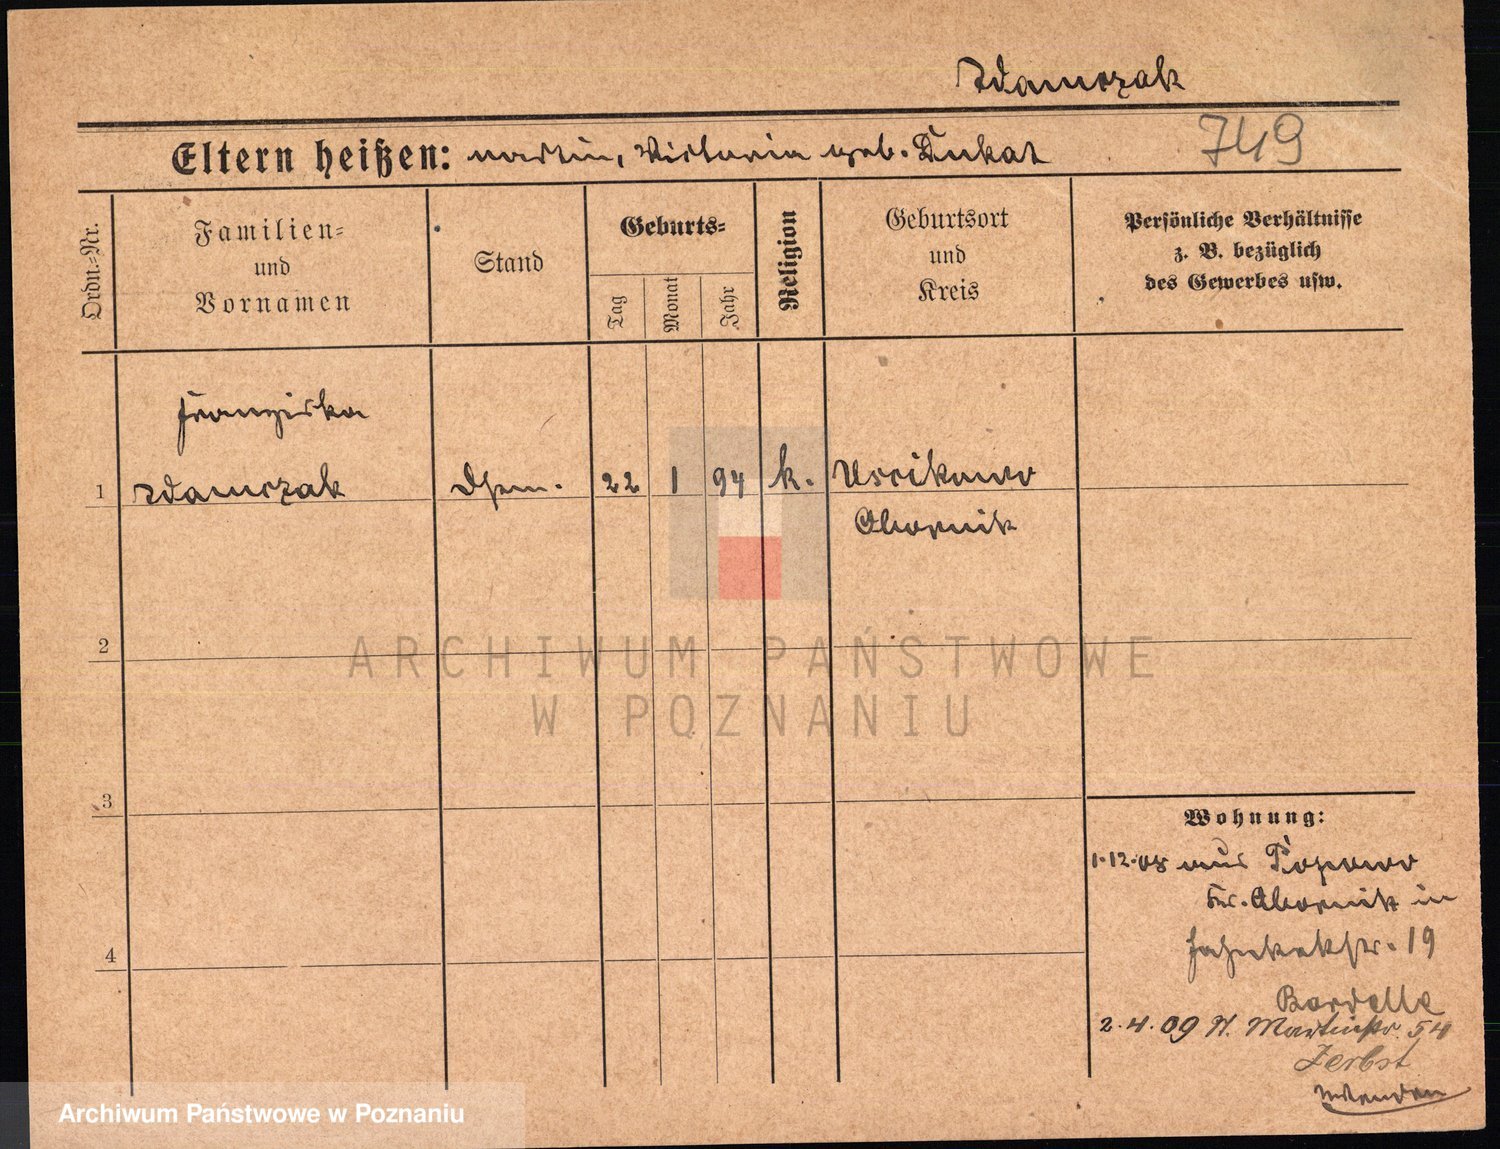 Adamczak
Eltern heißen: Martin, Victoria geb. Dukat
749
Ordn.-Nr.
Familien-
und
Vornamen
Stand
Geburts-
Tag
Monat
Jahr
Religion
Geburtsort
und
Kreis
Persönliche Verhältnisse
z. B. bezüglich
des Gewerbes usw.
Franziska
1 Adamczak 22 1 94 k.
Obornik
2
3
4
Wohnung:
1.12.08 aus
Kr. Obornik in
19
2.4.09 St. Martinstr. 54
Zerbst
ARCHIWUM PAŃSTWOWE
W POZNANIU
Archiwum Państwowe w Poznaniu